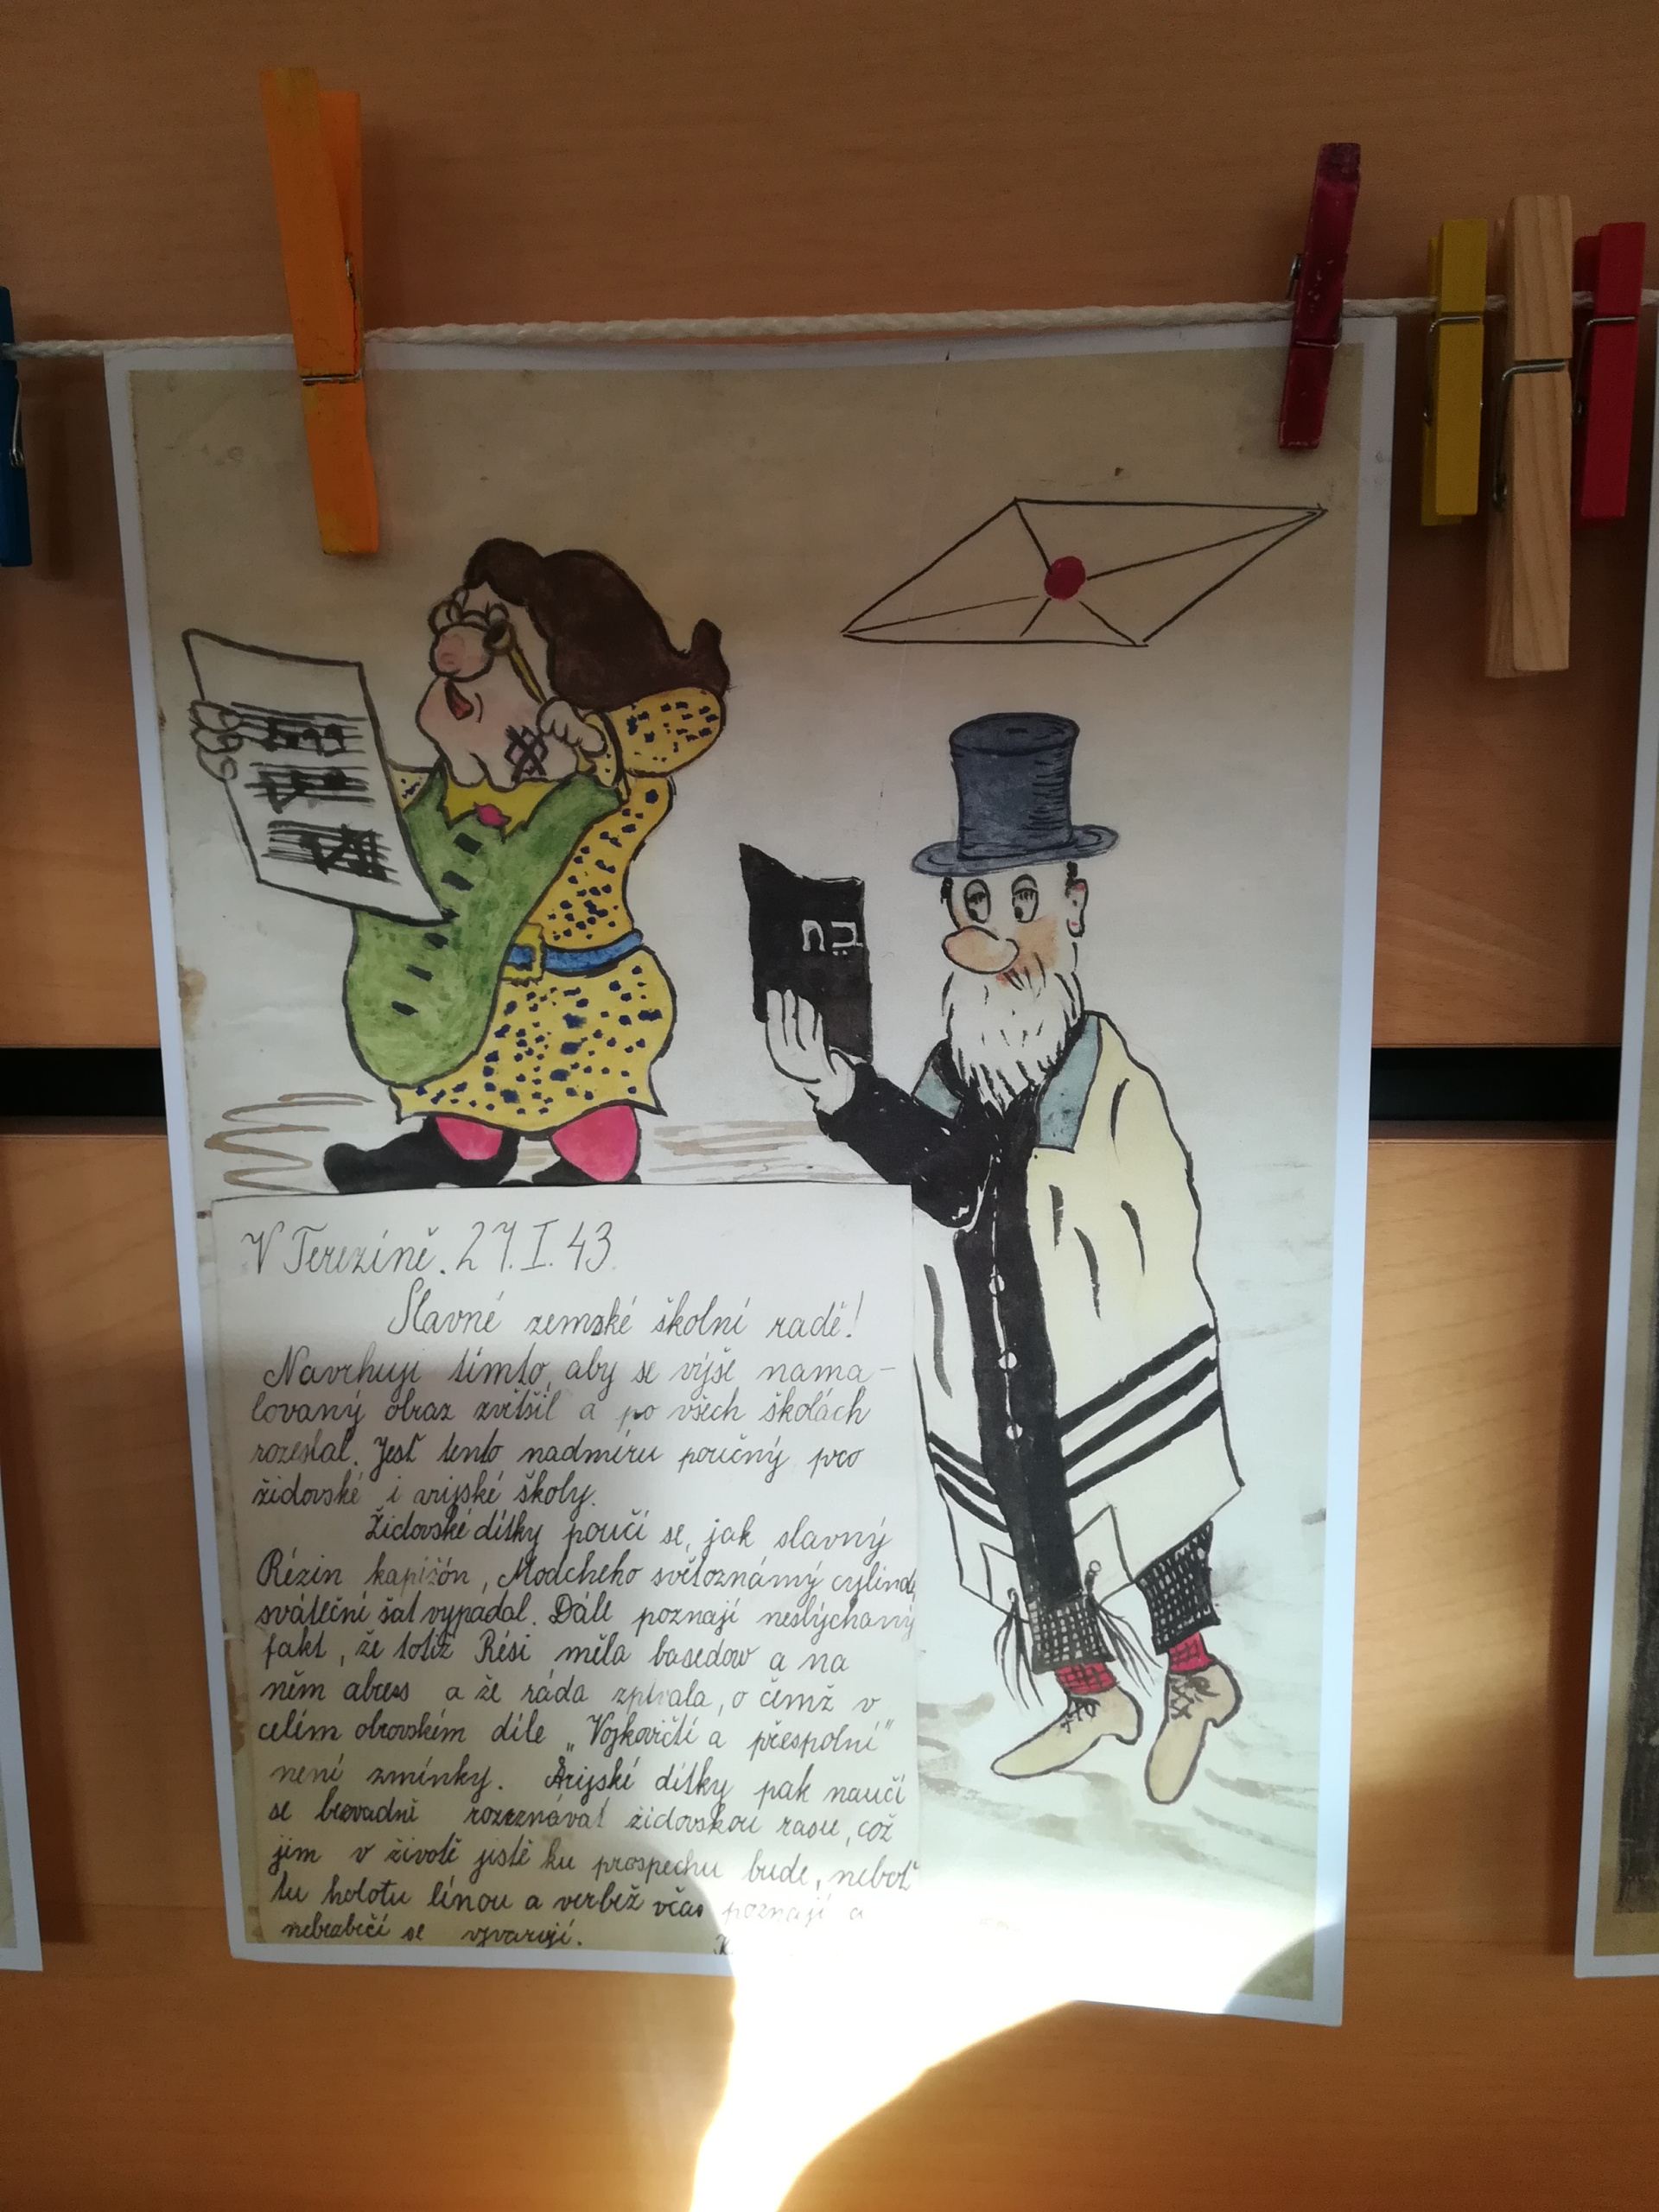 V Terezíně. 27. I. 43.
Slavné zemské školní radě!
Navrhuji tímto, aby se výše nama-
lovaný obraz zvětšil a po všech školách
rozeslal. Jesť tento nadmíru poučný pro
židovské i arijské školy.
Židovské dítky poučí se, jak slavný
Rézin kapižón, Modcheho světoznámý cylindr
sváteční šat vypadal. Dále poznají neslýchaný
fakt, že totiž Rési měla basedow a na
něm abses a že ráda zpívala, o čemž v
celém obrovském díle „Vojkovičtí a přespolní"
není zmínky. Arijské dítky pak naučí
se bezvadně rozeznávat židovskou rasu, což
jim v životě jistě ku prospěchu bude, neboť
tu holotu línou a verbež včas poznají a
se vyvarují.